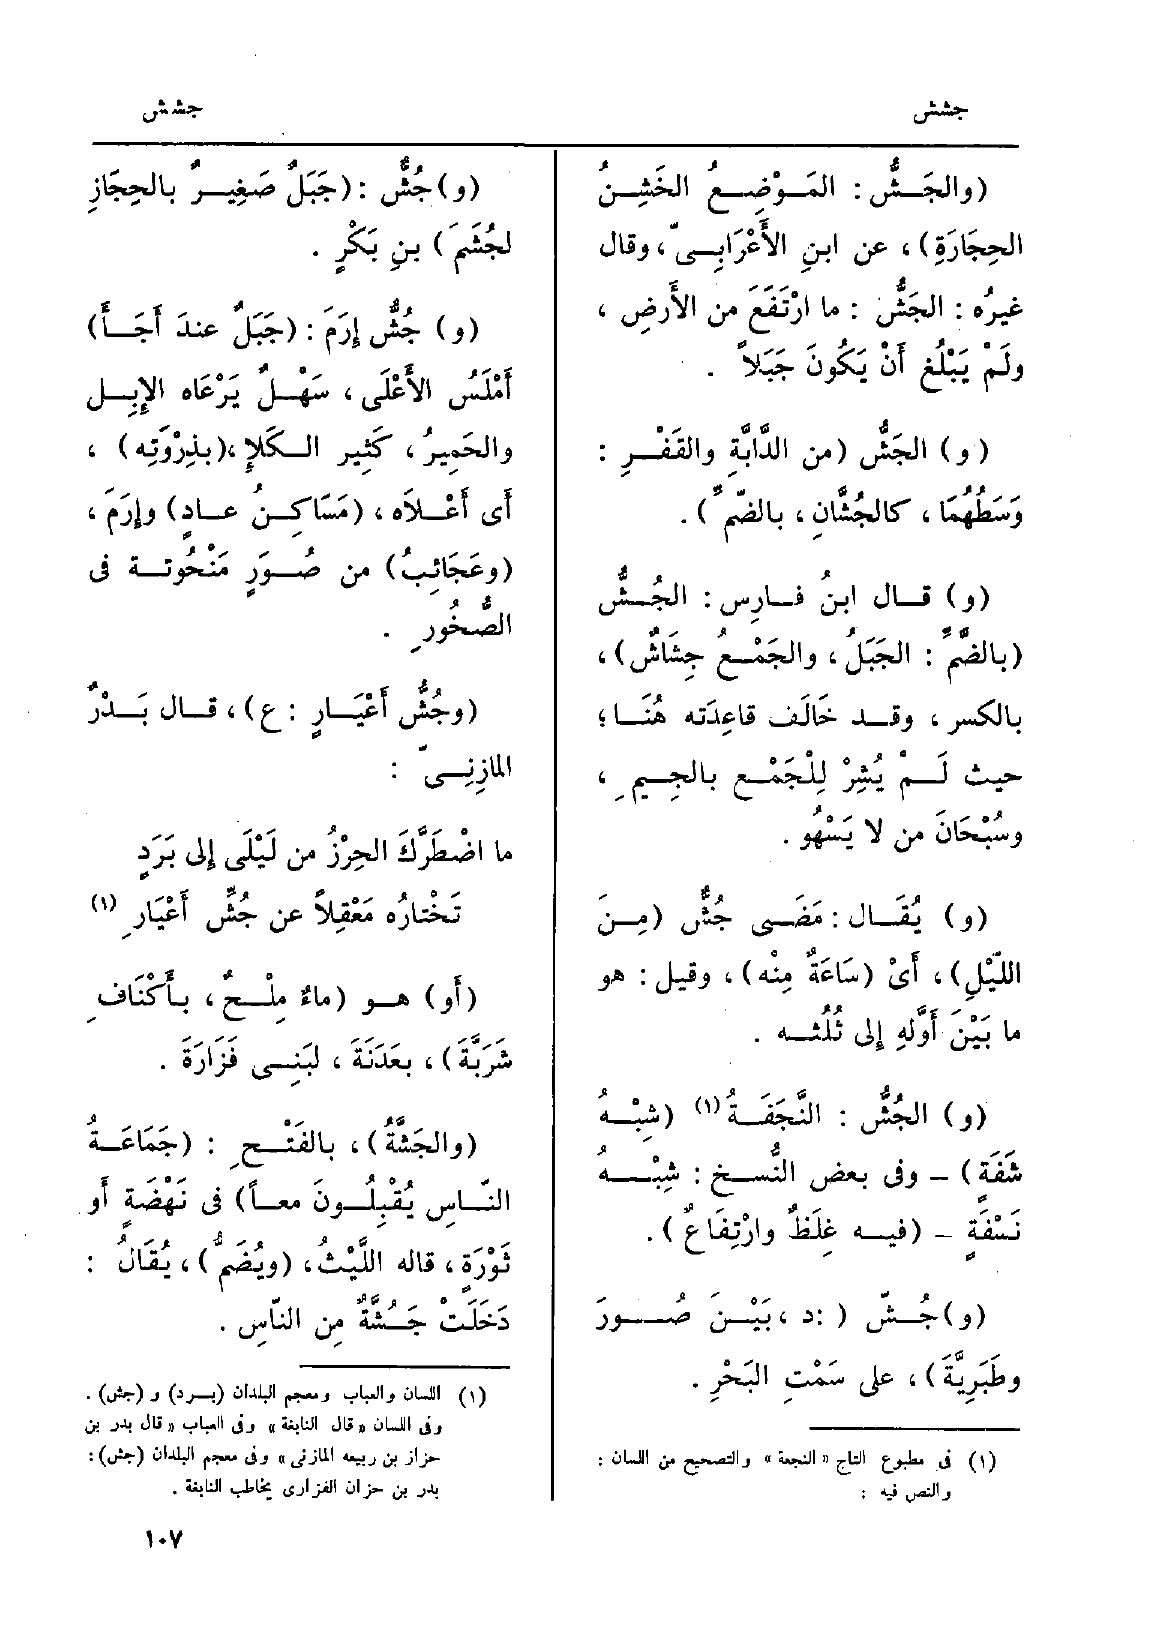 جشش
جشش
(والجَشُّ : المَوْضِعُ الخَشِنُ
الحِجَارَةِ) ، عن ابنِ الأَعْرَابِىّ ، وقال
غيرُه : الجَشُّ : ما ارْتَفَعَ من الأَرضِ ،
ولَمْ يَبْلُغ أَنْ يَكُونَ جَبَلاً .
(و) الجَشُّ (من الدَّابَّةِ والقَفْرِ :
وَسَطُهُمَا ، كالجُشَّانِ ، بالضّمّ) .
(و) قال ابنُ فارِس : الجُشُّ
(بالضَّمِّ : الجَبَلُ ، والجَمْع جِشَاشٌ) ،
بالكسر ، وقد خَالَف قاعِدَته هُنَا ؛
حيث لَمْ يُشِرْ لِلْجَمْع بالجِيم ،
وسُبْحَانَ من لا يَسْهُو .
(و) يُقَال : مَضَى جُشٌّ (مِنَ
اللَّيْلِ) ، أَىْ (سَاعَةٌ مِنْه) ، وقيل : هو
ما بَيْنَ أَوَّلِهِ إِلى ثُلُثه .
(و) الجُشُّ : النَّجَفَةُ (١) (شِبْهُ
شَفَةٍ) – وفى بعض النُّسخ : شِبْهُ
نَسْفَةٍ – (فيه غِلَظٌ وارْتِفَاعٌ) .
(و) جُشّ ( : د ، بَيْنَ صُورَ
وطَبَرِيَّةَ) ، على سَمْتِ البَحْرِ .
(١) فى مطبوع التاج « النجعة » والتصحيح من اللسان :
والنص فيه :
(و) جُشٌّ : (جَبَلٌ صَغِيرٌ بالحِجَازِ
لجُشَمَ) بنِ بَكْرٍ .
(و) جُشُّ إِرَمَ : (جَبَلٌ عندَ أَجَأَ)
أَمْلَسُ الأَعْلَى ، سَهْلٌ يَرْعَاه الإِبِل
والحَمِيرُ ، كَثِير الكَلإِ ، (بذِرْوَتِه) ،
أَى أَعْلاَه ، (مَسَاكِنُ عادٍ) وإِرَمَ ،
(وعَجَائِبُ) من صُوَرٍ مَنْحُوتة فى
الصُّخُورِ .
(وجُشُّ أَعْيَارٍ : ع) ، قال بَدْرٌ
المازِنِىّ :
ما اضْطَرَّكَ الحِرْزُ من لَيْلَى إِلى بَرَدٍ
تَخْتارُه مَعْقِلاً عن جُشِّ أَعْيَارِ (١)
(أَو) هو (ماءٌ مِلْحٌ ، بأَكْنَافِ
شَرَبَّةَ) ، بعَدَنَةَ ، لبَنِى فَزَارَةَ .
(والجَشَّةُ) ، بالفَتْحِ : (جَمَاعَةُ
النّاسِ يُقْبِلُونَ معاً) فى نَهْضَةٍ أَو
ثَوْرَةٍ ، قاله اللَّيْثُ ، (ويُضَمُّ) ، يُقَالُ :
دَخَلَتْ جَشَّةٌ مِن النّاسِ .
(١) اللسان والعباب ومعجم البلدان (برد) و (جش) .
وفى اللسان « قال النابغة » وفى العباب « قال بدر بن
حزاز بن ربيعه المازنى » وفى معجم البلدان (جش) :
بدر بن حزان الفزارى يخاطب النابغة .
١٠٧